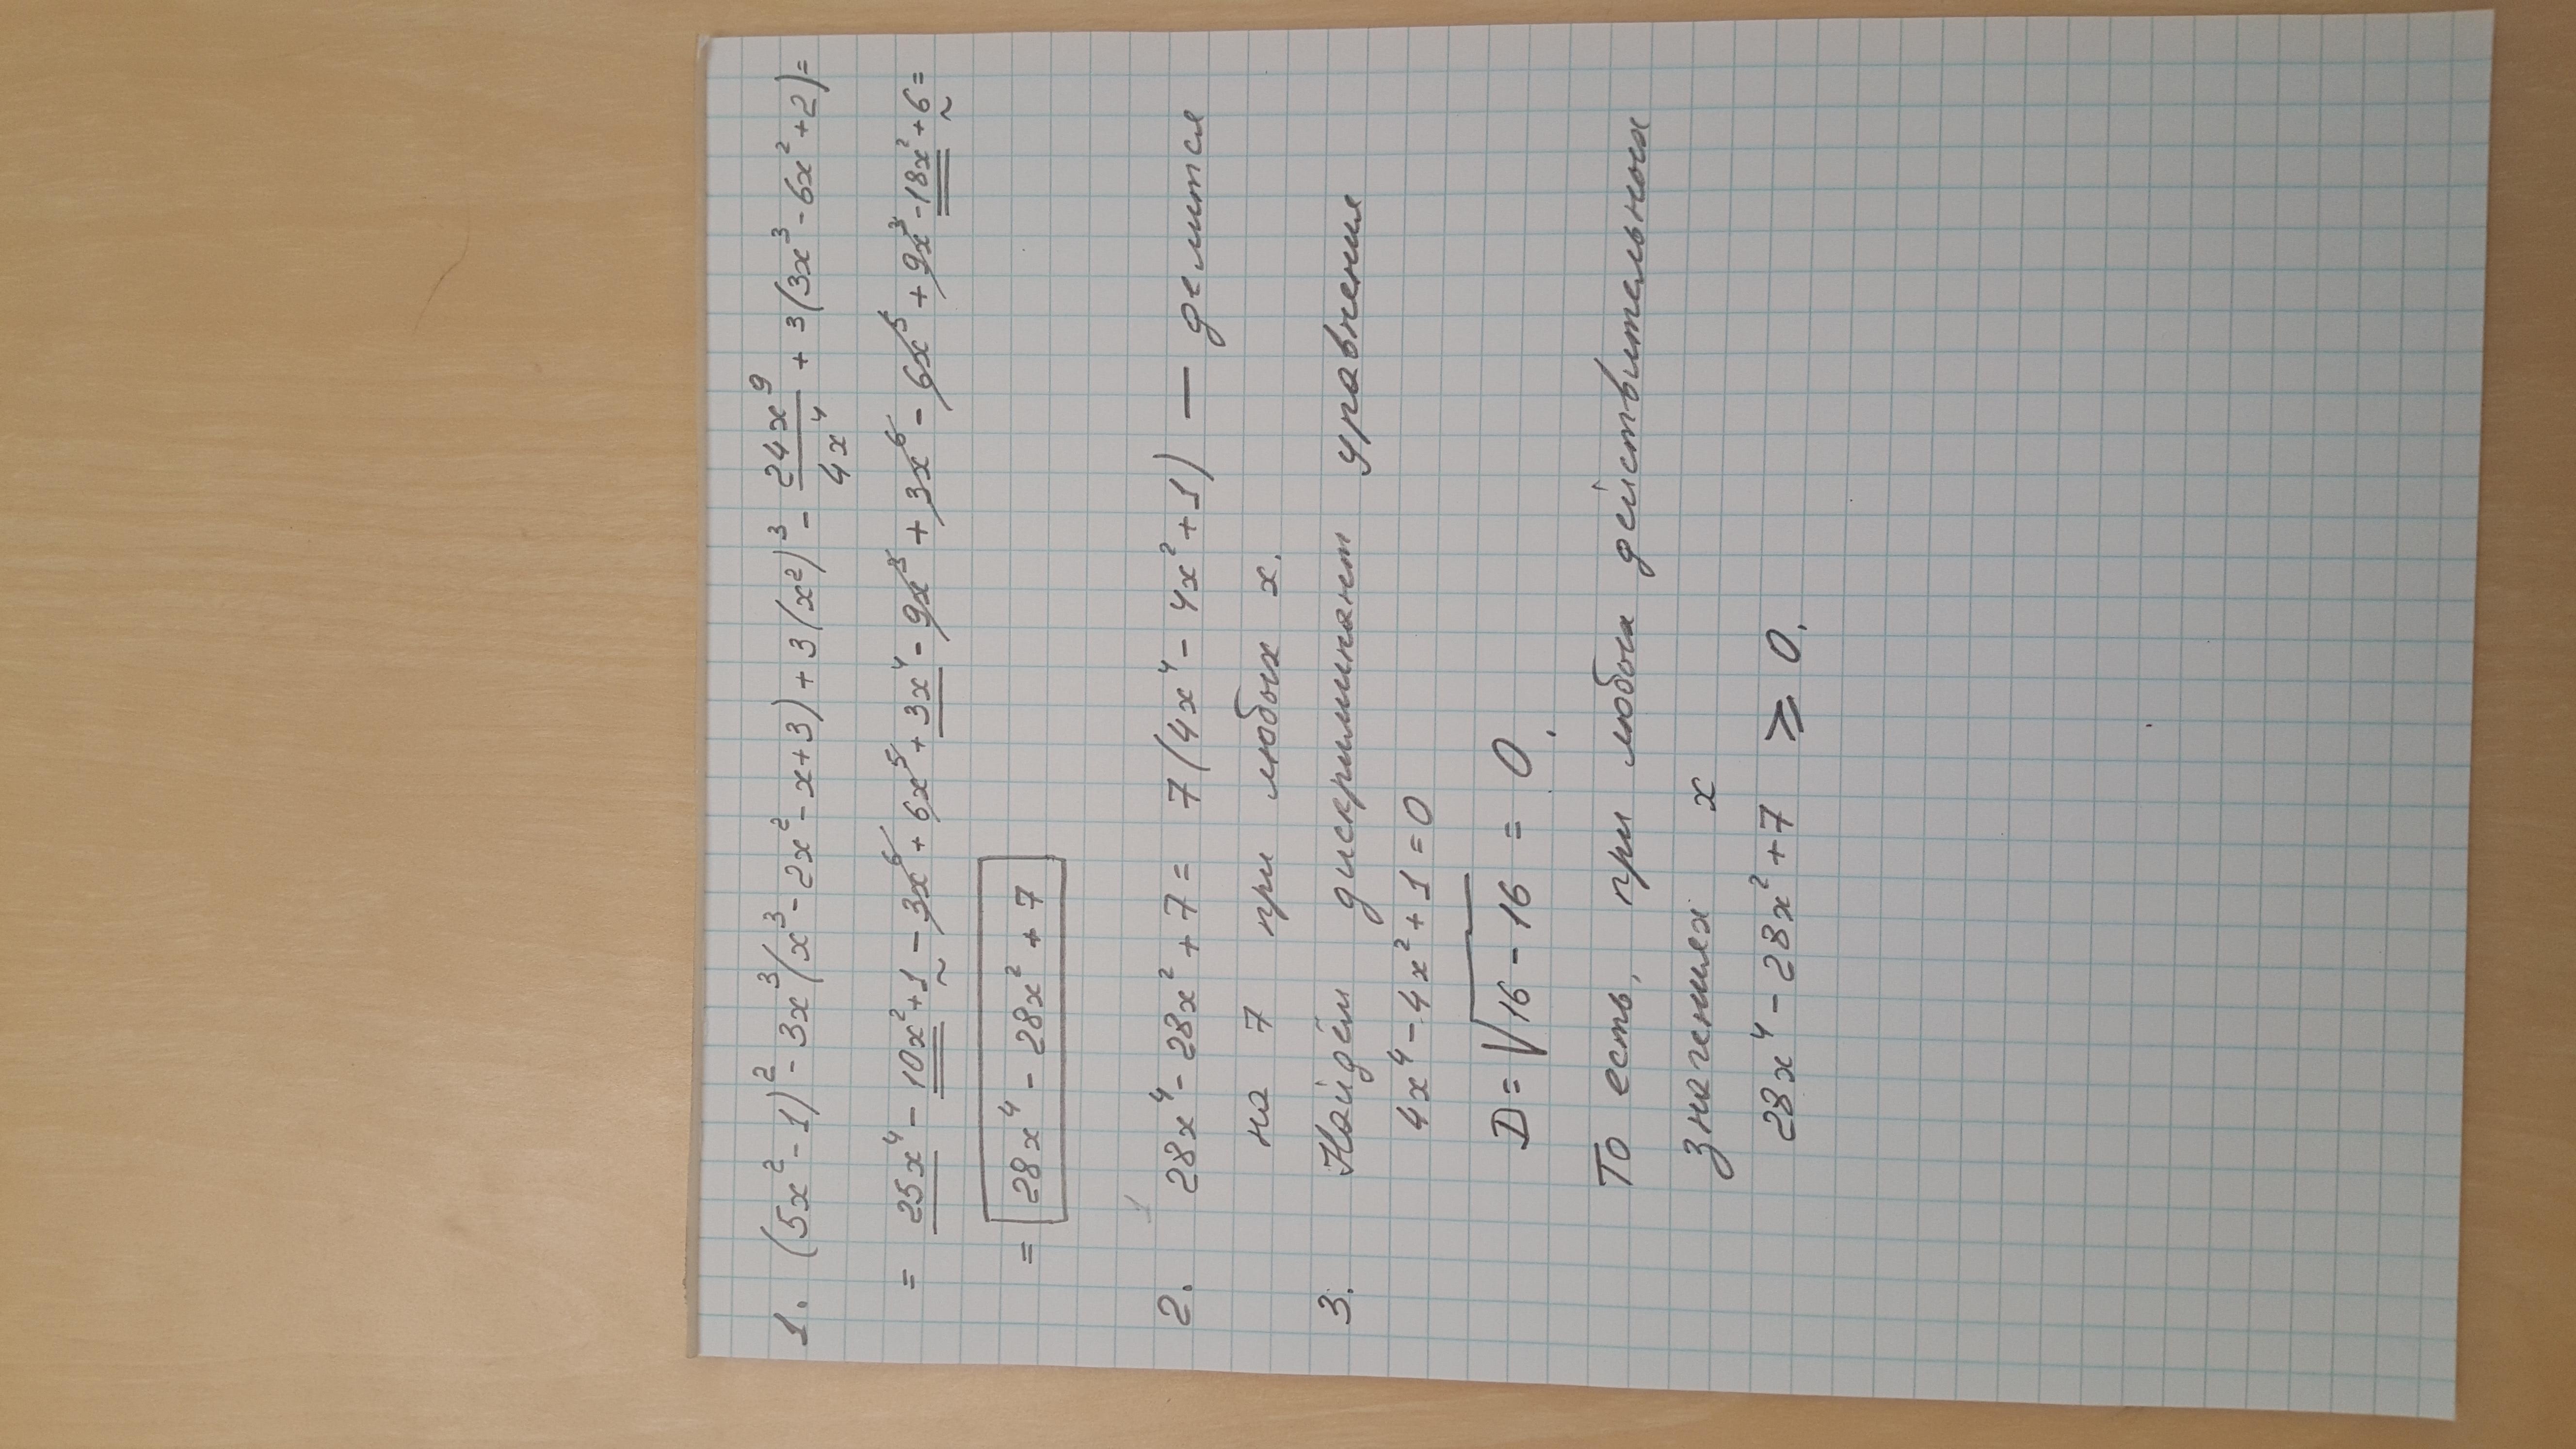 1. (5x²-1)² - 3x³(x³ - 2x² - x + 3) + 3(x²)³ - 24x⁹/4x⁴ + 3(3x³ - 6x² + 2) =
= 25x⁴ - 10x² + 1 - 3x⁶ + 6x⁵ + 3x⁴ - 9x³ + 3x⁶ - 6x⁵ + 9x³ - 18x² + 6 =
= 28x⁴ - 28x² + 7
2. 28x⁴ - 28x² + 7 = 7(4x⁴ - 4x² + 1) — делится
на 7 при любых x.
3. Найдём дискриминант уравнения
4x⁴ - 4x² + 1 = 0
D = √16 - 16 = 0.
То есть, при любых действительных
значениях x
28x⁴ - 28x² + 7 ⩾ 0.